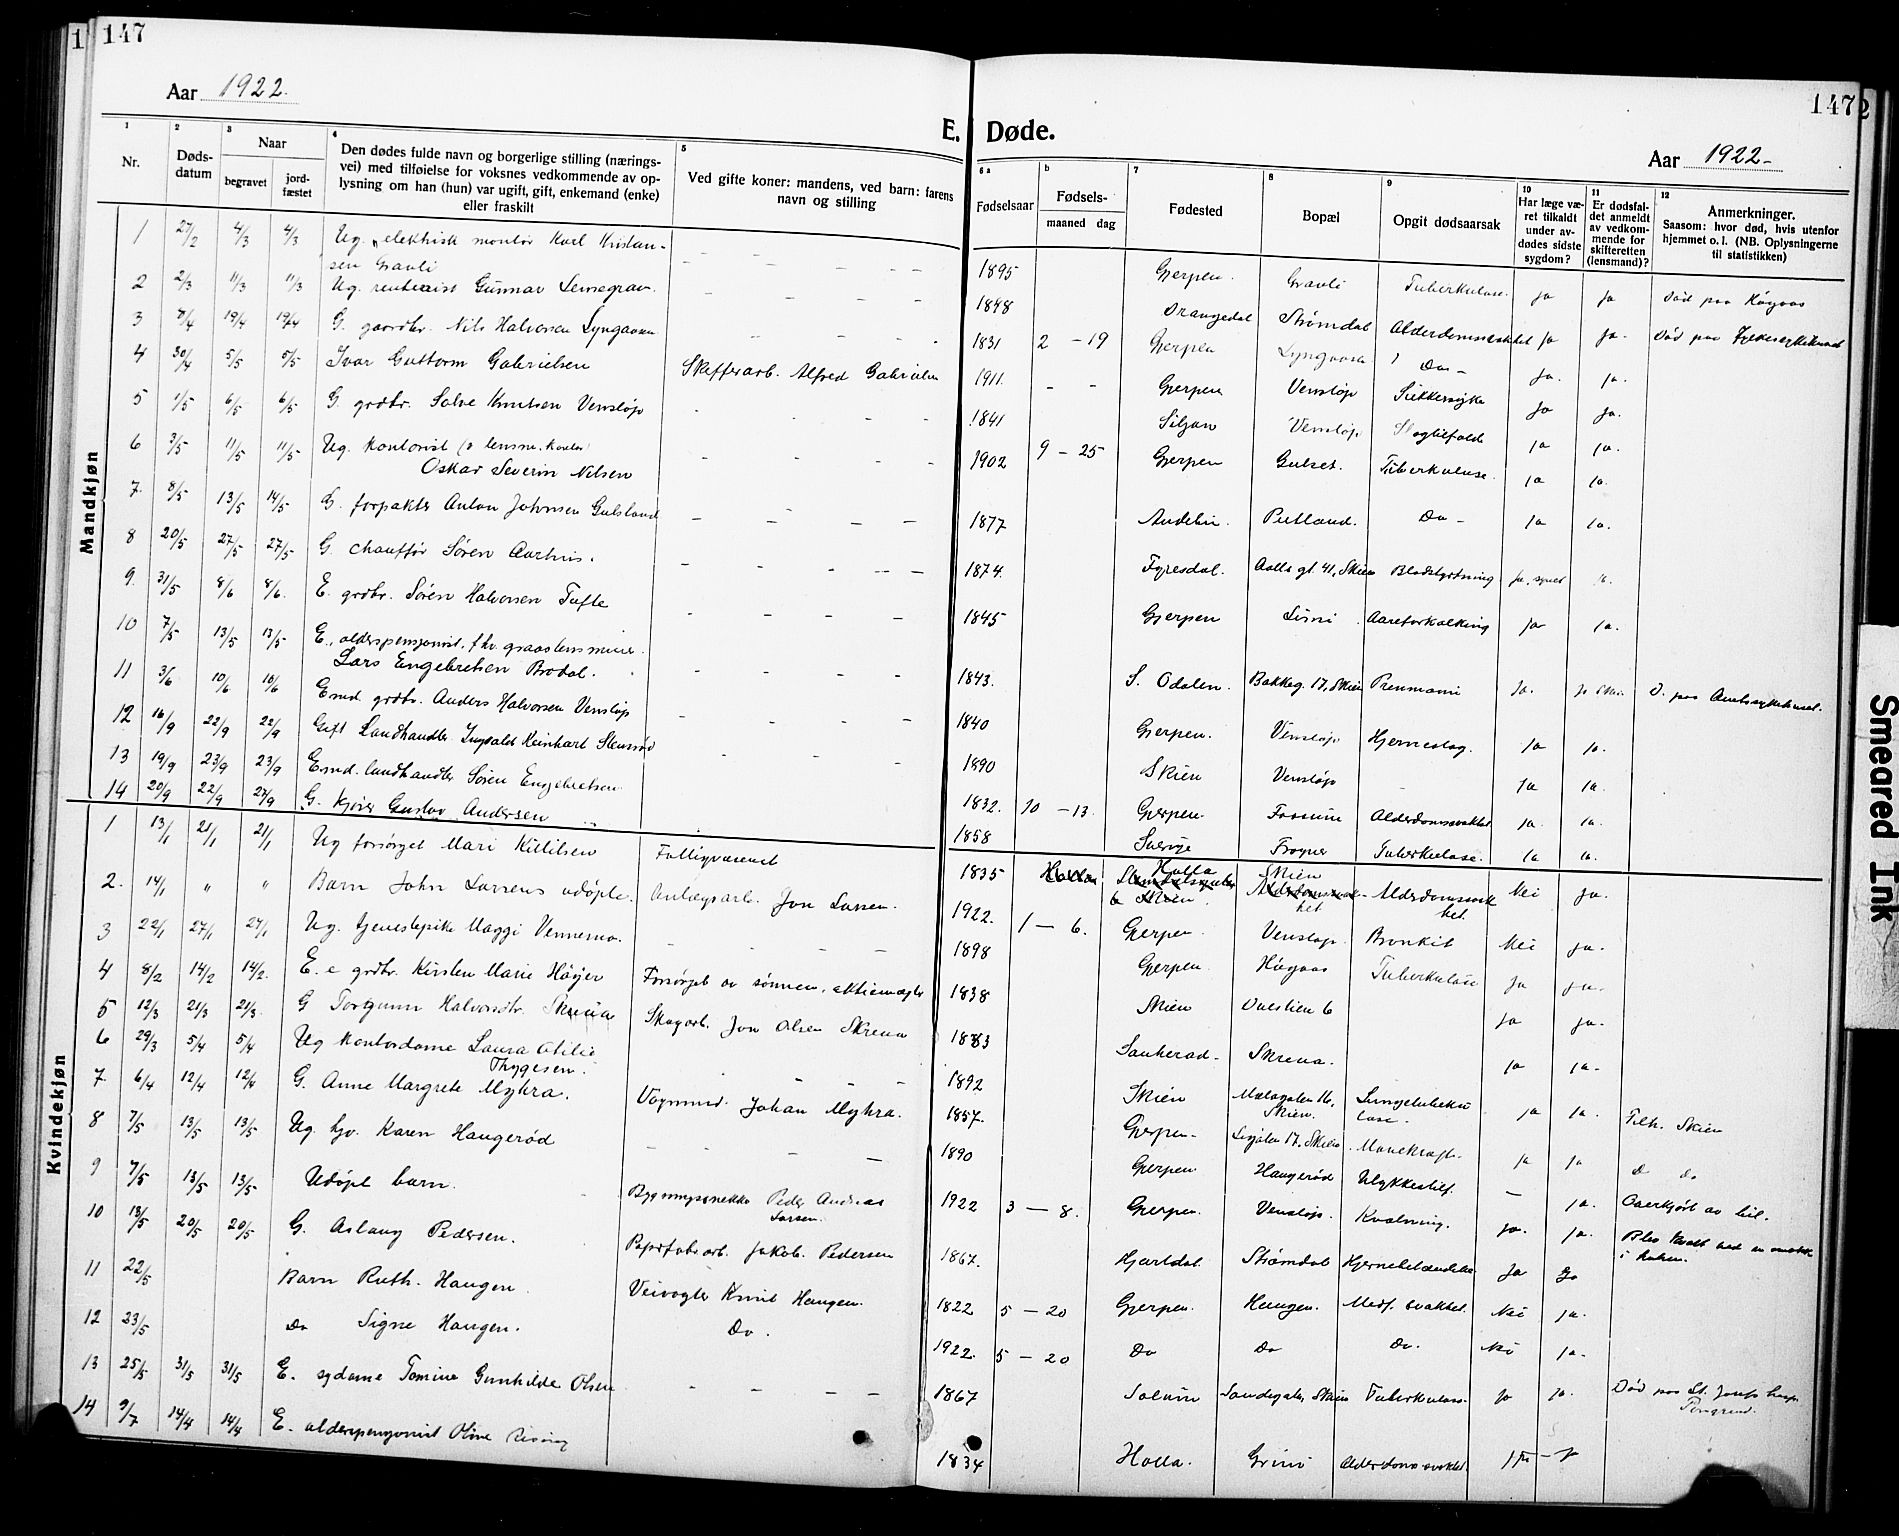 1 147
147 2
Aar 1922.
E. Døde.
Aar 1922-
1
Nr.
2
Døds-
datum
3
Naar
begravet
jord-
fæstet
4
Den dødes fulde navn og borgerlige stilling (nærings-
vei) med tilføielse for voksnes vedkommende av op-
lysning om han (hun) var ugift, gift, enkemand (enke)
eller fraskilt
5
Ved gifte koner: mandens, ved barn: farens
navn og stilling
6 a
Fødselsaar
b
Fødsels-
maaned dag
7
Fødested
8
Bopæl
9
Opgit dødsaarsak
10
Har læge væ-
ret tilkaldt
under av-
dødes sidste
sygdom?
11
Er dødsfal-
det anmeldt
av vedkom-
mende for
skifteretten
(lensmand)?
12
Anmerkninger.
Saasom: hvor død, hvis utenfor
hjemmet o. l. (NB. Oplysningerne
til statistikken)
Mandkjøn
1 27/2 4/3 4/3 Ug. elektrisk montør Karl Kristian-
sen Gravli - - - - 1895 Gjerpen. Gravli Tuberkulose. ja ja Død paa Høgaas
2 2/3 11/3 11/3 Ug. Gunnar - - - - 1848 Drangedal Strømdal Alderdomssvakhet ja ja. Død paa
3 8/4 19/4 19/4 G. gaardbr. Nils Halvorsen Lyngaasen - - - 1831 2 - 19 Gjerpen Lyngaasen Do - ja. ja.
4 30/4 5/5 5/5 Ivar Guttorm Gabrielsen Skifferarb. Alfred Gabrielsen 1911. - - Gjerpen Venstøp Sukkersyke ja ja.
5 1/5 6/5 6/5 G. grdbr. Solve Knutsen Venstøp - - - - 1841 Siljan Venstøp Slagtilfælde ja ja.
6 3/5 11/5 11/5 Ug. kontorist
Oskar Severin Nilsen - - - - 1902 9 - 25 Gjerpen Gulset. Tuberkulose. ja ja.
7. 8/5 13/5 14/5 G. forpakter Anton Johnsen Gulsland - - - - 1877 Andebu. Putland. Do - ja ja.
8 20/5 27/5 27/5 G. chauffør Søren Aarhus. - - - - 1874. Fyresdal. Aalls gt. 41, Skien Blodstyrtning ja,
9. 31/5 8/6 8/6. E. grdbr. Søren Halvorsen Tufte - - - - 1845 Gjerpen Limi Aareforkalkning ja ja.
10 7/5 13/5 13/5 E., alderspensjonist,
Lars Engebretsen Brodal. - - - - 1843. S. Odalen. Bakkeg. 17, Skien ja. D. paa Amtssykehuset.
11 3/6 10/6 10/6 Emd. grdbr. Anders Halvorsen Venstøp - - - - 1840 Gjerpen. Venstøp Hjerneslag. ja ja.
12 16/9 22/9 22/9 Gift Landhandler Ingvald Reinhart - - - - 1890 Skien Venstøp - ja ja.
13 19/9 23/9 23/9 Emd. landhandler Søren Engebretsen 1832. 10 - 13. Gjerpen. Fossum Alderdomssvakhet ja. ja.
14 20/9 22/9 27/9 G. Kjører Gustav Andersen 1858 Sverige Frogner Tuberkulose. ja ja.
Kvindekjøn
1 13/1 21/1 21/1 Ug forsørget Mari Kittilsen Fattigvæsenet 1835 Holla Skien Alderdomssvak
het. Nei ja.
2. 14/1 " " Barn John Larsens udøpte. Anlægsarb. Jon Larsen. 1922. 1 - 6. Gjerpen. Venstøp. Bronkit Nei ja.
3 22/1 27/1 27/1 Ug. tjenestepike Maggi Vennemo. - - - - 1898 Gjerpen. Høgaas Tuberkulose ja ja.
4 8/2 14/2 14/2. E. e grdbr. Kirsten Marie Høyer Forsørget av sønnen, 1838 Skien 6 ja ja.
5 12/3 21/3 21/3. G Torgunn Halvorsdtr. Skreua Skogarb. Jon Olsen Skreua 1883 Sauherad. Skreua. ja ja.
6 29/3 5/4 5/4 Ug kontordame Laura Otilie
Thygesen. - - - 1892 Skien Mælagaten 16,
Skien. Lungetuberku
lose. ja ja. Tilh. Skien
7. 6/4 12/4 12/4 G. Anne Margrete Myhra. Vognmd. Johan Myhra. 1857. Gjerpen. 17. Skien Mavekræft. ja ja Do Do
8 7/5 13/5 13/5 Ug. hjv. Karen Haugerød - - - - 1890 Gjerpen Haugerød Ulykkestilf. - ja. Overkjørt av bil.
9 7/5 13/5 13/5 Udøpt barn. Peder Andreas
Larsen. 1922 3 - 8. Gjerpen. Venstøp. Kvælning. ja. ja. Blev kvalt ved en
i halsen.
10 13/5 20/5 20/5 G. Aslaug Pedersen. Papirfabr.arb. Jakob Pedersen 1867. Hjartdal Strømdal Hjernebetændelse ja ja
11 22/5 Barn Ruth Haugen Veivogter Knut Haugen. 1822 5 - 20 Gjerpen. Haugen. Medf. svakhet. Nei ja.
12 23/5 Do Signe Haugen. Do. 1922. 5 - 20 Do Do Do. Nei ja.
13 25/5 31/5 31/5 E. sydame Tomine Gunhilde Olsen - - - - 1867 Solum Skien Tuberkulose. ja ja. Død paa St. Josefs hosp.
Porsgrund.
14 9/7 14/4 14/4 E. alderspensjonist Oline 1834 Holla. Grini Alderdomssvakhet
Smeared Ink